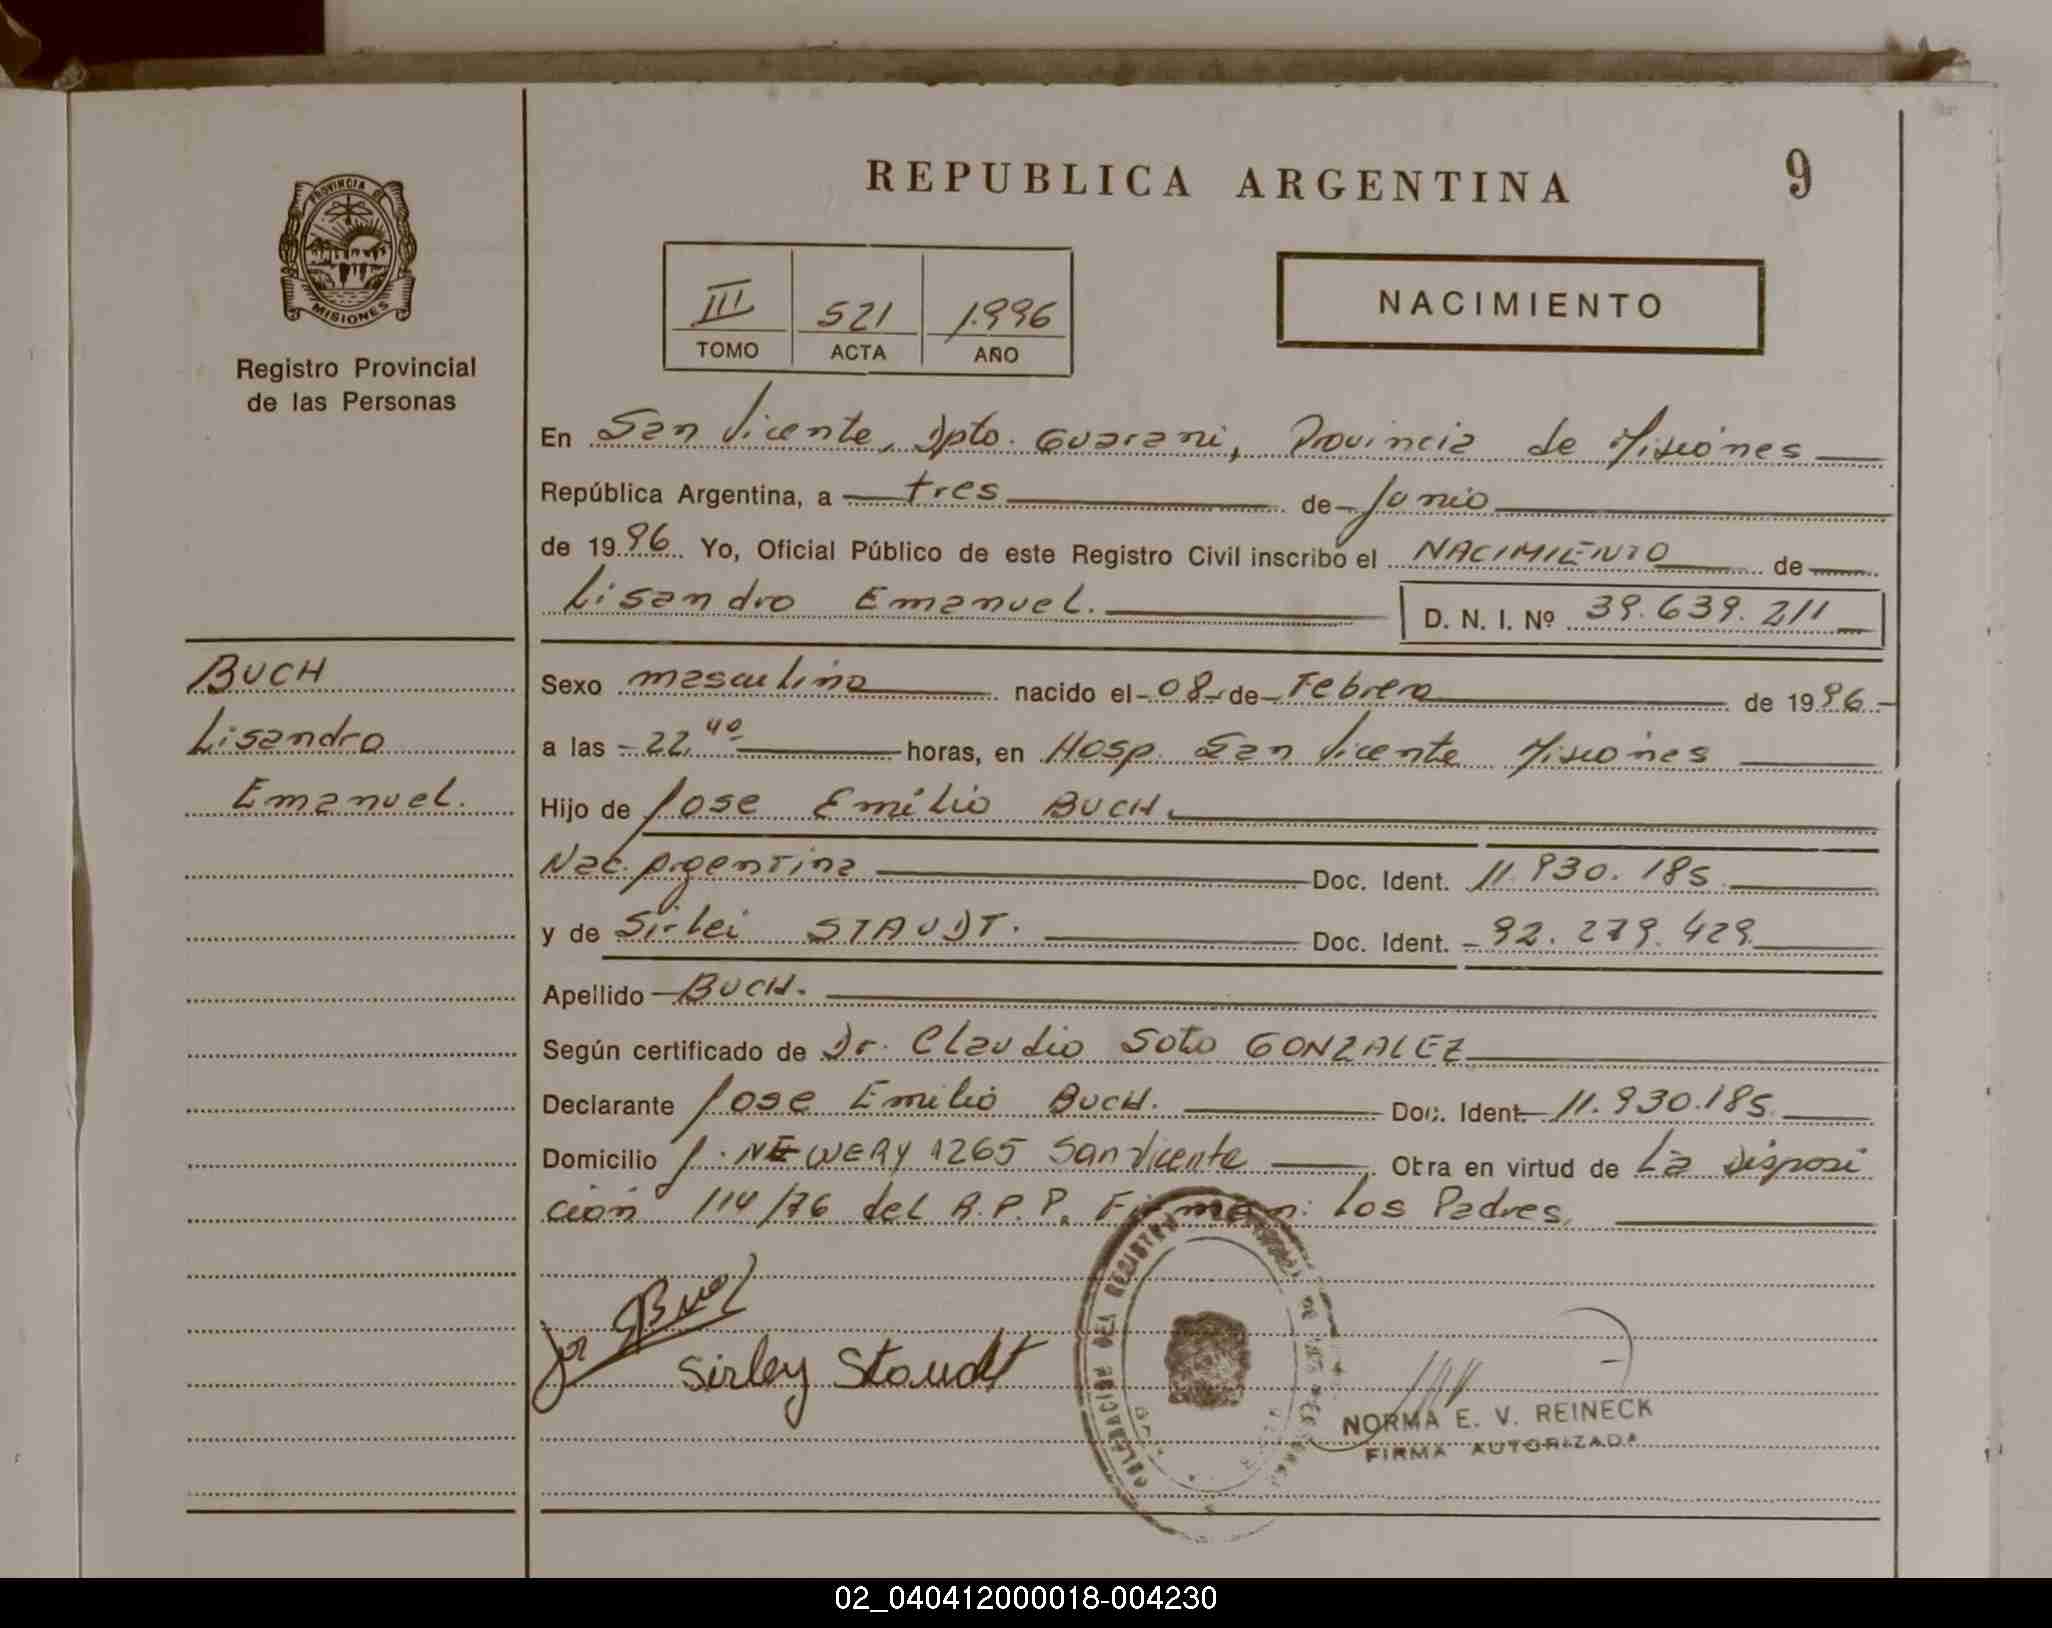 REPUBLICA ARGENTINA
9
PROVINCIA DE
MISIONES
Registro Provincial
de las Personas
III 521 1.996
TOMO ACTA AÑO
NACIMIENTO
En San Vicente, Dpto. Guarani, Provincia de Misiones
República Argentina, a tres de Junio
de 1996 Yo, Oficial Público de este Registro Civil inscribo el NACIMIENTO de
Lisandro Emanuel. D. N. I. Nº 39.639.211
BUCH
Lisandro
Emanuel.
Sexo masculino nacido el 08 de Febrero de 1996
a las 22 40 horas, en Hosp. San Vicente Misiones
Hijo de Jose Emilio BUCH
Nac. Argentina Doc. Ident. 11.930.185
y de Sirlei STAUDT. Doc. Ident. 92.279.429
Apellido BUCH.
Según certificado de Dr. Claudio Soto GONZALEZ
Declarante Jose Emilio BUCH. Doc. Ident. 11.930.185
Domicilio J. NEWERY 1265 San Vicente Obra en virtud de La Disposi
ción 114/76 del R.P.P. Firman: Los Padres.
Sirley Staudt
NORMA E. V. REINECK
FIRMA AUTORIZADA
02_040412000018-004230